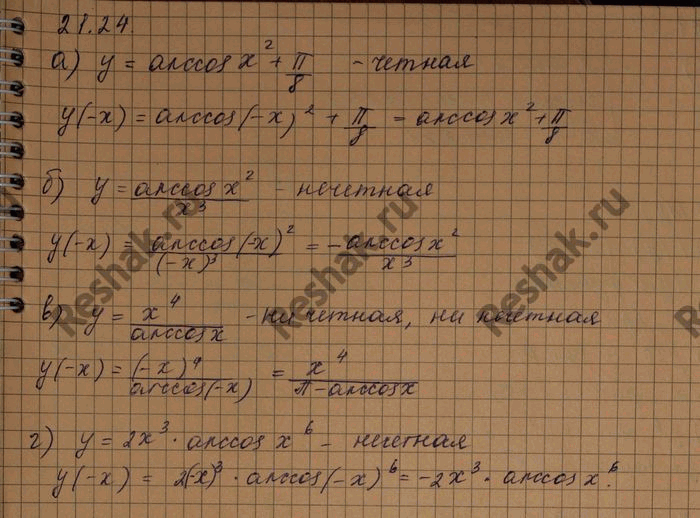 21.24.
а) y = arccos x² + π/8 - четная
y(-x) = arccos(-x)² + π/8 = arccos x² + π/8
б) y = arccos x² / x³ - нечетная
y(-x) = arccos(-x)² / (-x)³ = - arccos x² / x³
в) y = x⁴ / arccos x - ни четная, ни нечетная
y(-x) = (-x)⁴ / arccos(-x) = x⁴ / π - arccos x
г) y = 2x³ · arccos x⁶ - нечетная
y(-x) = 2(-x)³ · arccos(-x)⁶ = -2x³ · arccos x⁶.
Reshak.ru
Reshak.ru
Reshak.ru